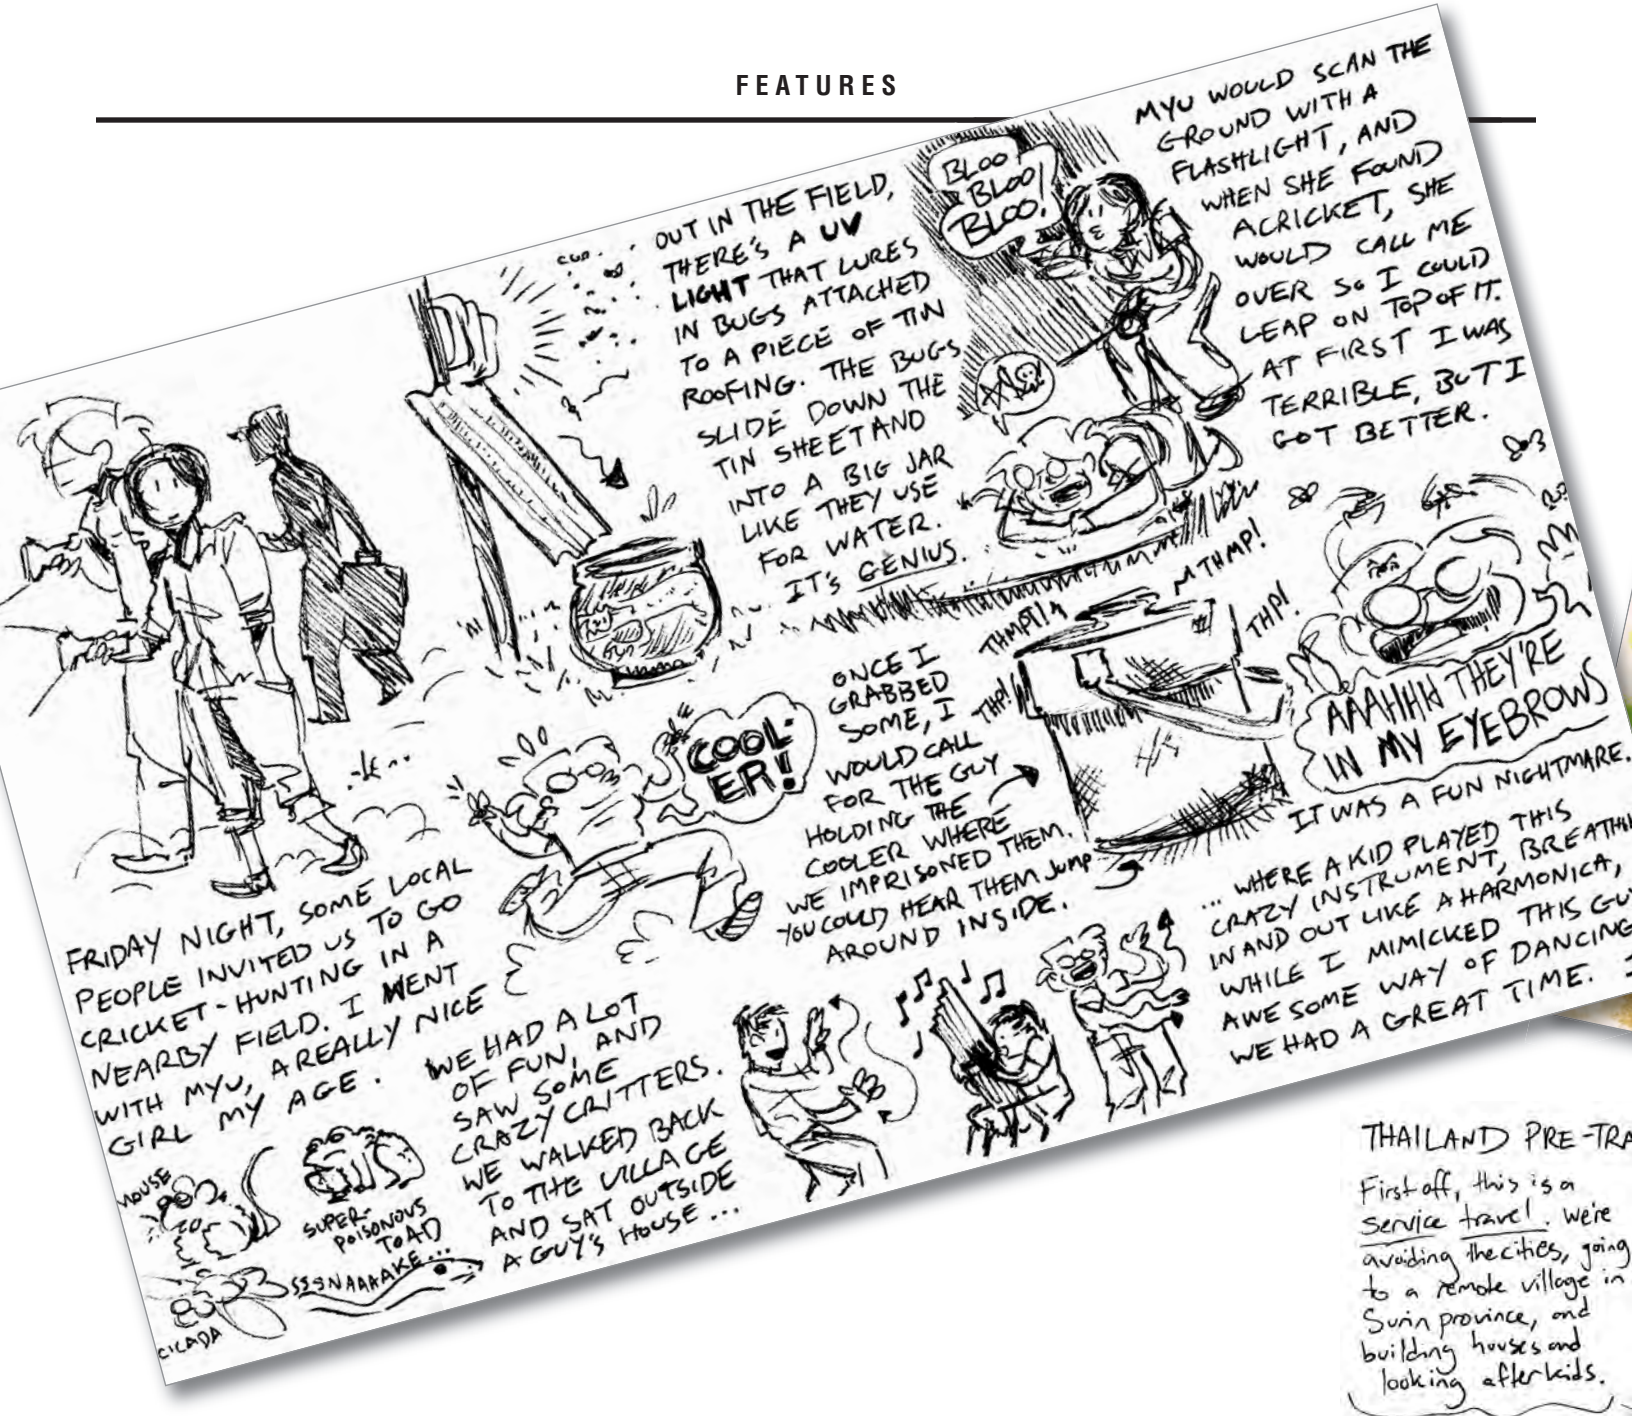 FEATURES
FRIDAY NIGHT, SOME LOCAL
PEOPLE INVITED US TO GO
CRICKET-HUNTING IN A
NEARBY FIELD. I WENT
WITH MYU, A REALLY NICE
GIRL MY AGE.
OUT IN THE FIELD,
THERE'S A UV
LIGHT THAT LURES
IN BUGS ATTACHED
TO A PIECE OF TIN
ROOFING. THE BUGS
SLIDE DOWN THE
TIN SHEET AND
INTO A BIG JAR
LIKE THEY USE
FOR WATER.
IT'S GENIUS.
BLOO
BLOO
BLOO!
MYU WOULD SCAN THE
GROUND WITH A
FLASHLIGHT, AND
WHEN SHE FOUND
A CRICKET, SHE
WOULD CALL ME
OVER SO I COULD
LEAP ON TOP OF IT.
AT FIRST I WAS
TERRIBLE, BUT I
GOT BETTER.
COOL-
ER!
ONCE I
GRABBED
SOME, I
WOULD CALL
FOR THE GUY
HOLDING THE
COOLER WHERE
WE IMPRISONED THEM.
YOU COULD HEAR THEM JUMP
AROUND INSIDE.
THMPT!
MTHMP!
THP!
THP!
AAAHHH THEY'RE
IN MY EYEBROWS
IT WAS A FUN NIGHTMARE.
WE HAD A LOT
OF FUN, AND
SAW SOME
CRAZY CRITTERS.
WE WALKED BACK
TO THE VILLAGE
AND SAT OUTSIDE
A GUY'S HOUSE...
MOUSE
SUPER-
POISONOUS
TOAD
SSSNAAAAKE...
CICADA
... WHERE A KID PLAYED THIS
CRAZY INSTRUMENT, BREATHIN
IN AND OUT LIKE A HARMONICA,
WHILE I MIMICKED THIS GU
AWESOME WAY OF DANCING
WE HAD A GREAT TIME.
THAILAND PRE-TRA
First off, this is a
service travel. We're
avoiding the cities, going
to a remote village in
Surin province, and
building houses and
looking after kids.